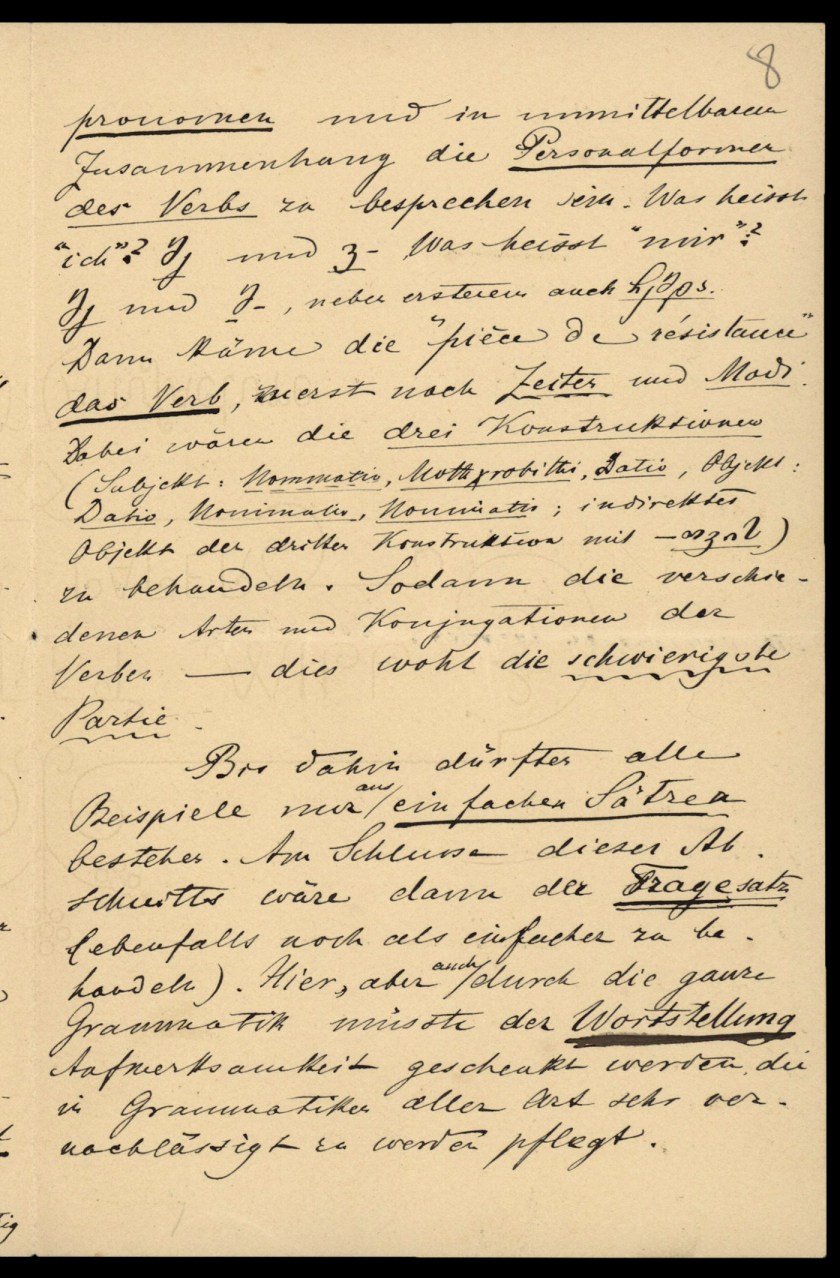 8
pronomen und in unmittelbarem
Zusammenhang die Personalformen
des Verbs zu besprechen sein. Was heisst
"ich"? und Was heisst "mir"?
und, neben ersterem auch
Dann käme die "pièce de résistance"
das Verb, zuerst nach Zeiten und Modi.
Dabei wären die drei Konstruktionen
(Subjekt: Nominativ, Mothxrobithi, Dativ, Objekt:
Dativ, Nominativ, Nominativ; indirektes
Objekt der dritten Konstruktion mit)
zu behandeln. Sodann die verschie-
denen Arten und Konjugationen der
Verben — dies wohl die schwierigste
Partie.
Bis dahin dürften alle
Beispiele nur aus einfachen Sätzen
bestehen. Am Schlusse dieses Ab-
schnitts wäre dann der Fragesatz
(ebenfalls noch als einfacher zu be-
handeln). Hier, aber auch durch die ganze
Grammatik müsste der Wortstellung
Aufmerksamkeit geschenkt werden, die
in Grammatiken aller Art sehr ver-
nachlässigt zu werden pflegt.